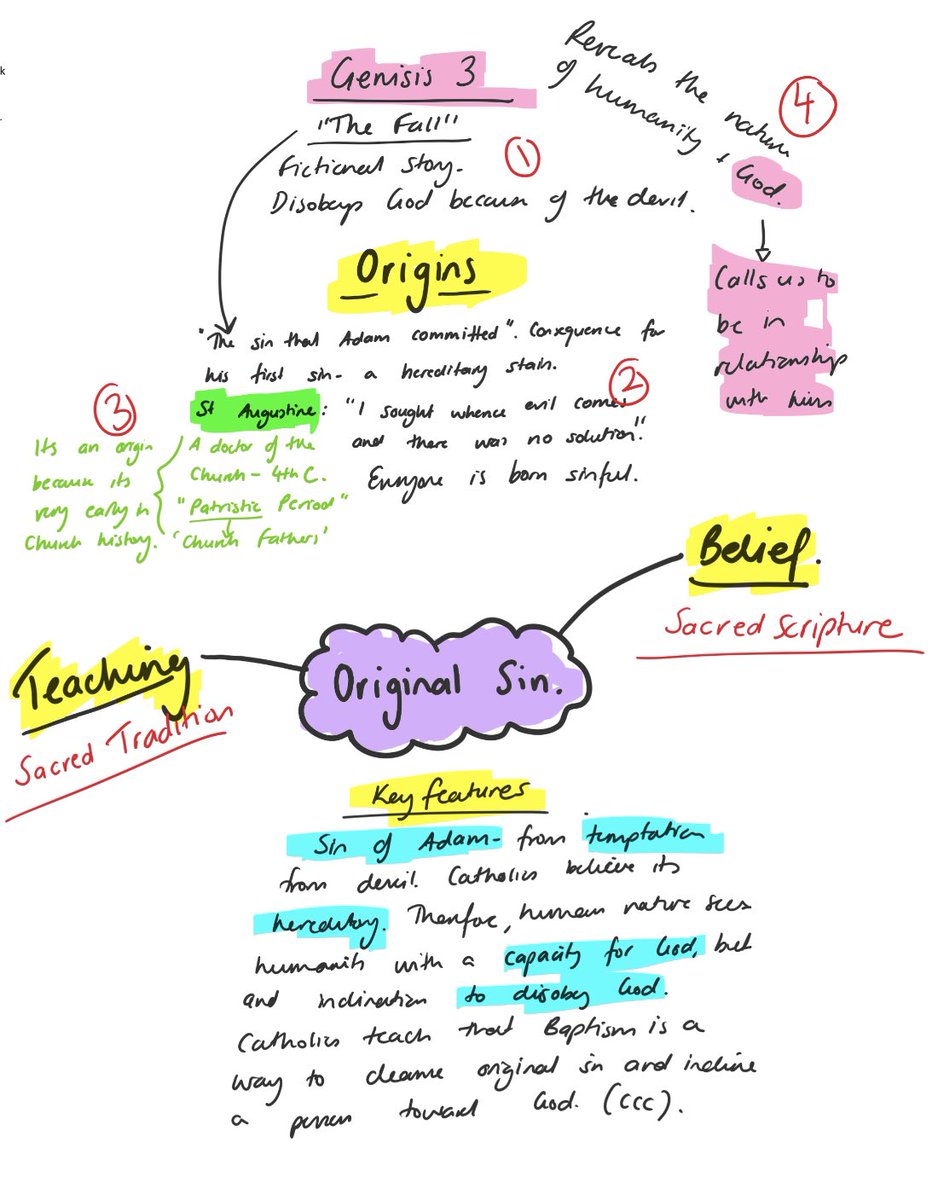 k
Genisis 3
"The Fall"
Fictional story.
Disobeys God because of the devil.
1
Reveals the nature
of humanity + God.
4
Calls us to
be in
relationship
with him
Origins
"The sin that Adam committed". Consequence for
his first sin - a hereditary stain.
2
St Augustine: "I sought whence evil comes
and there was no solution".
Everyone is born sinful.
3
Its an origin
because its
very early in
Church history.
A doctor of the
Church - 4th C.
"Patristic Period"
'Church Fathers'
Belief.
Sacred Scripture
Teaching
Sacred Tradition
Original Sin.
Key features
Sin of Adam - from temptation
from devil. Catholics believe its
hereditary. Therefore, human nature sees
humanity with a capacity for God, but
and inclination to disobey God.
Catholics teach that Baptism is a
way to cleanse original sin and incline
a person toward God. (CCC).